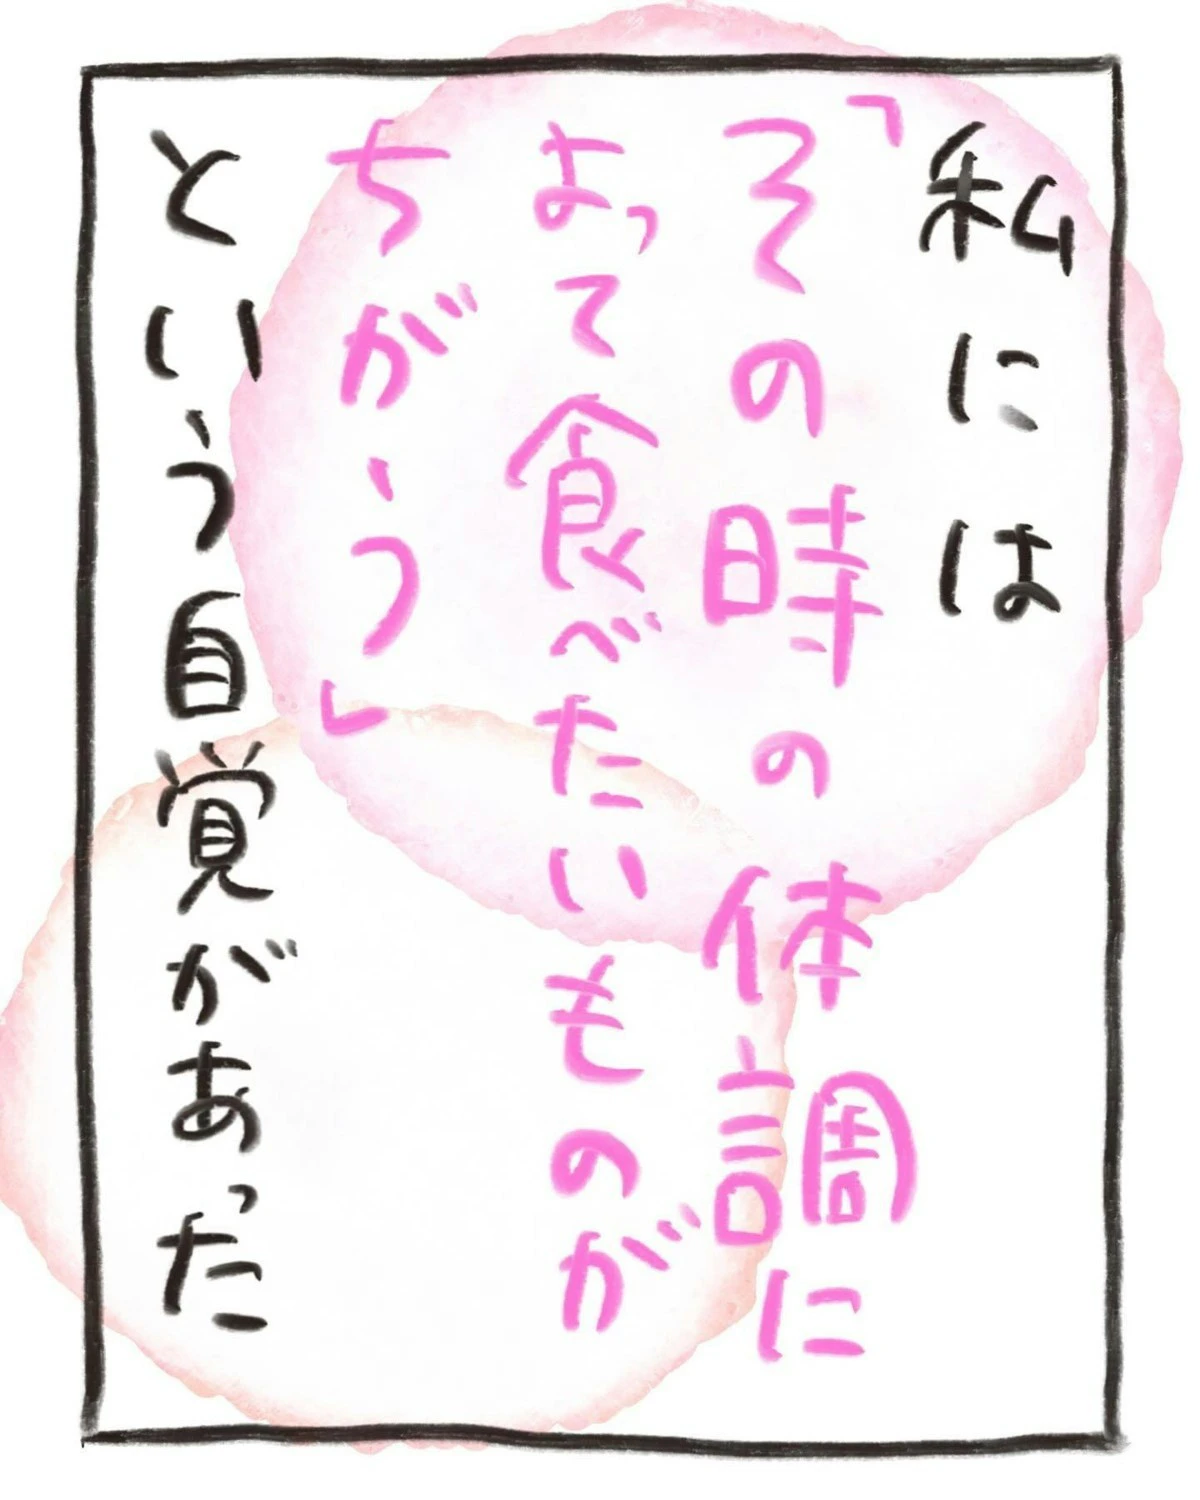 私には
「その時の体調に
よって食べたいものが
ちがう」
という自覚があった